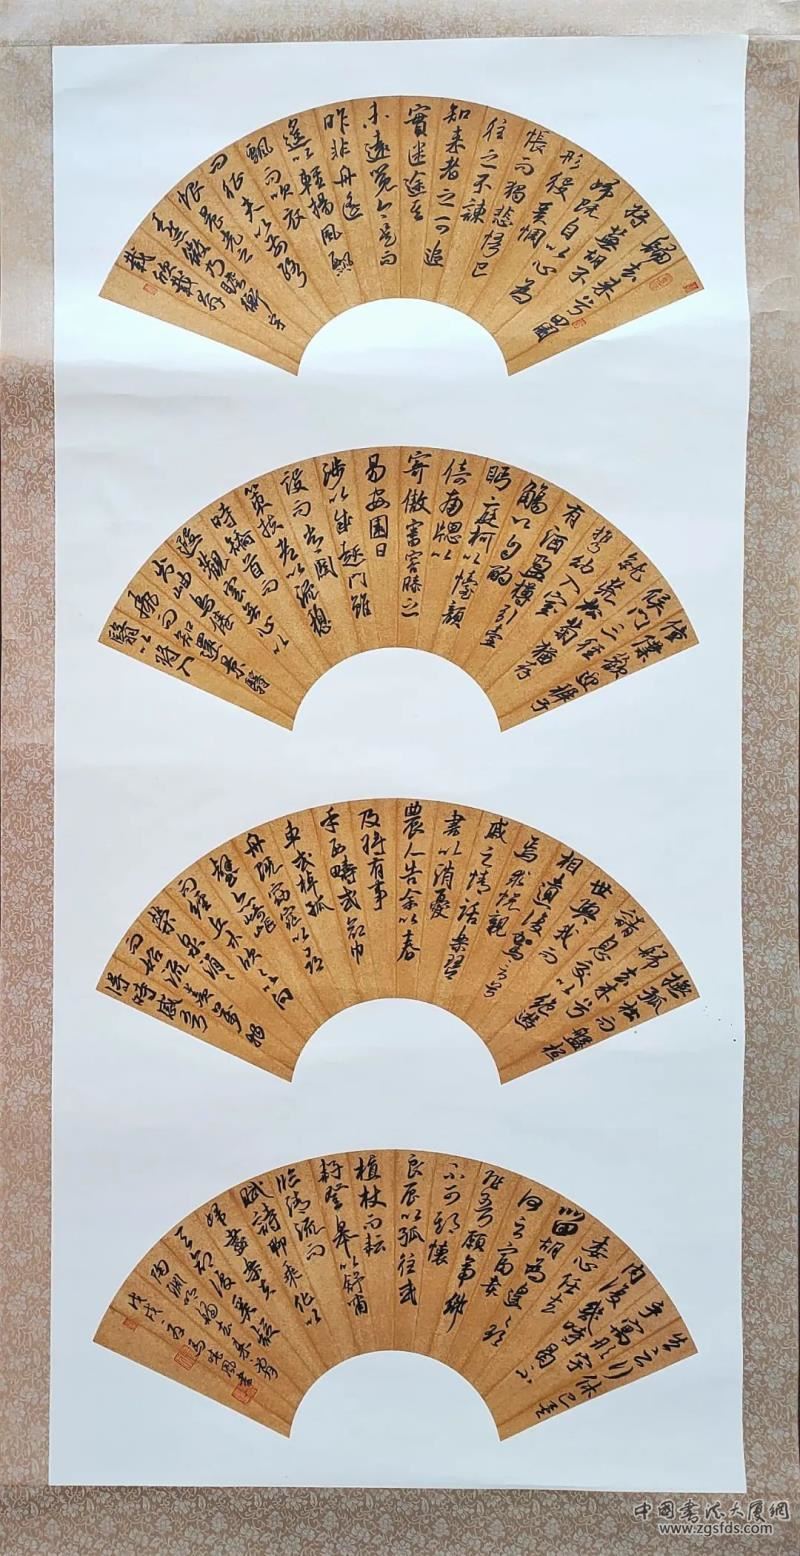 歸去來兮田園
將蕪胡不
歸既自以心為
形役奚惆
悵而獨悲悟已
往之不諫
知來者之可追
實迷途其
未遠覺今是而
昨非舟遙
遙以輕揚風飄
飄而吹衣
問征夫以前路
恨晨光之
熹微乃瞻衡宇
載欣載奔
僮僕歡迎稚子
候門三徑
就荒松菊猶存
攜幼入室
有酒盈樽引壺
觴以自酌
眄庭柯以怡顏
倚南牕以
寄傲審容膝之
易安園日
涉以成趣門雖
設而常關
策扶老以流憩
時矯首而
遐觀雲無心以
出岫鳥倦
飛而知還景翳
翳以將入
撫孤松而盤桓
歸去來兮
請息交以絕遊
世與我而
相遺復駕言兮
焉求悅親
戚之情話樂琴
書以消憂
農人告余以春
及將有事
于西疇或命巾
車或棹孤
舟既窈窕以尋
壑亦崎嶇
而經丘木欣欣以向
榮泉涓涓
而始流羨萬物
得時感吾
生之行休已矣
乎寓形宇
內復幾時曷不
委心任去
留胡為遑遑欲
何之富貴
非吾願帝鄉
不可期懷
良辰以孤往或
植杖而耘
耔登皋以舒嘯
臨清流而
賦詩聊乘化以
歸盡樂夫
天命復奚疑
陶淵明歸去來辭
戊戌
中國書法大厦網
www.zgsfds.com